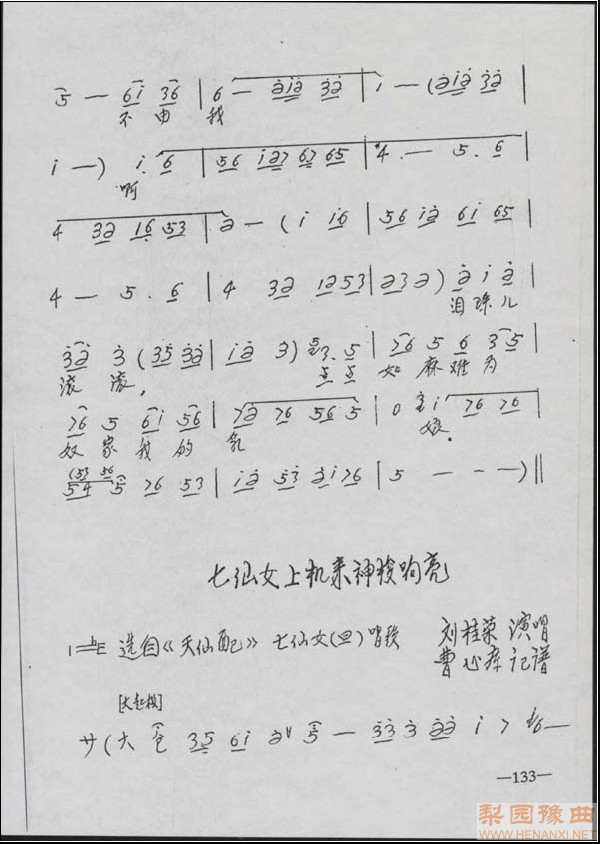 5 — 6i 36 | 6 — 2i2 32 | i — (2i2 32 |
不由 我
i —) i. 6 | 56 i27 67 65 | #4. — 5. 6 |
啊
4 32 16 53 | 2 — (i i6 | 56 i2 6i 65 |
4 — 5. 6 | 4 32 1253 | 232) 2 i 2 |
泪珠儿
32 3 (35 32 | i2 3) 3. 5 | 76 5 6 35 |
滚滚, 如麻难为
76 5 6i 56 | 72 76 56 5 | 0 i 76 76 |
奴家我的 娘.
(53 56
54 5 76 53 | i2 53 2i76 | 5 — — —) ||
七仙女上机来神梭响亮
1=bE 选自《天仙配》 七仙女(旦)唱段 刘桂荣 演唱
曹 记谱
[大起板]
サ(大 仓 35 6i 2 5 — 33 3 22 i 7 i6—
—133—
梨园豫曲
WWW.HENANXI.NET